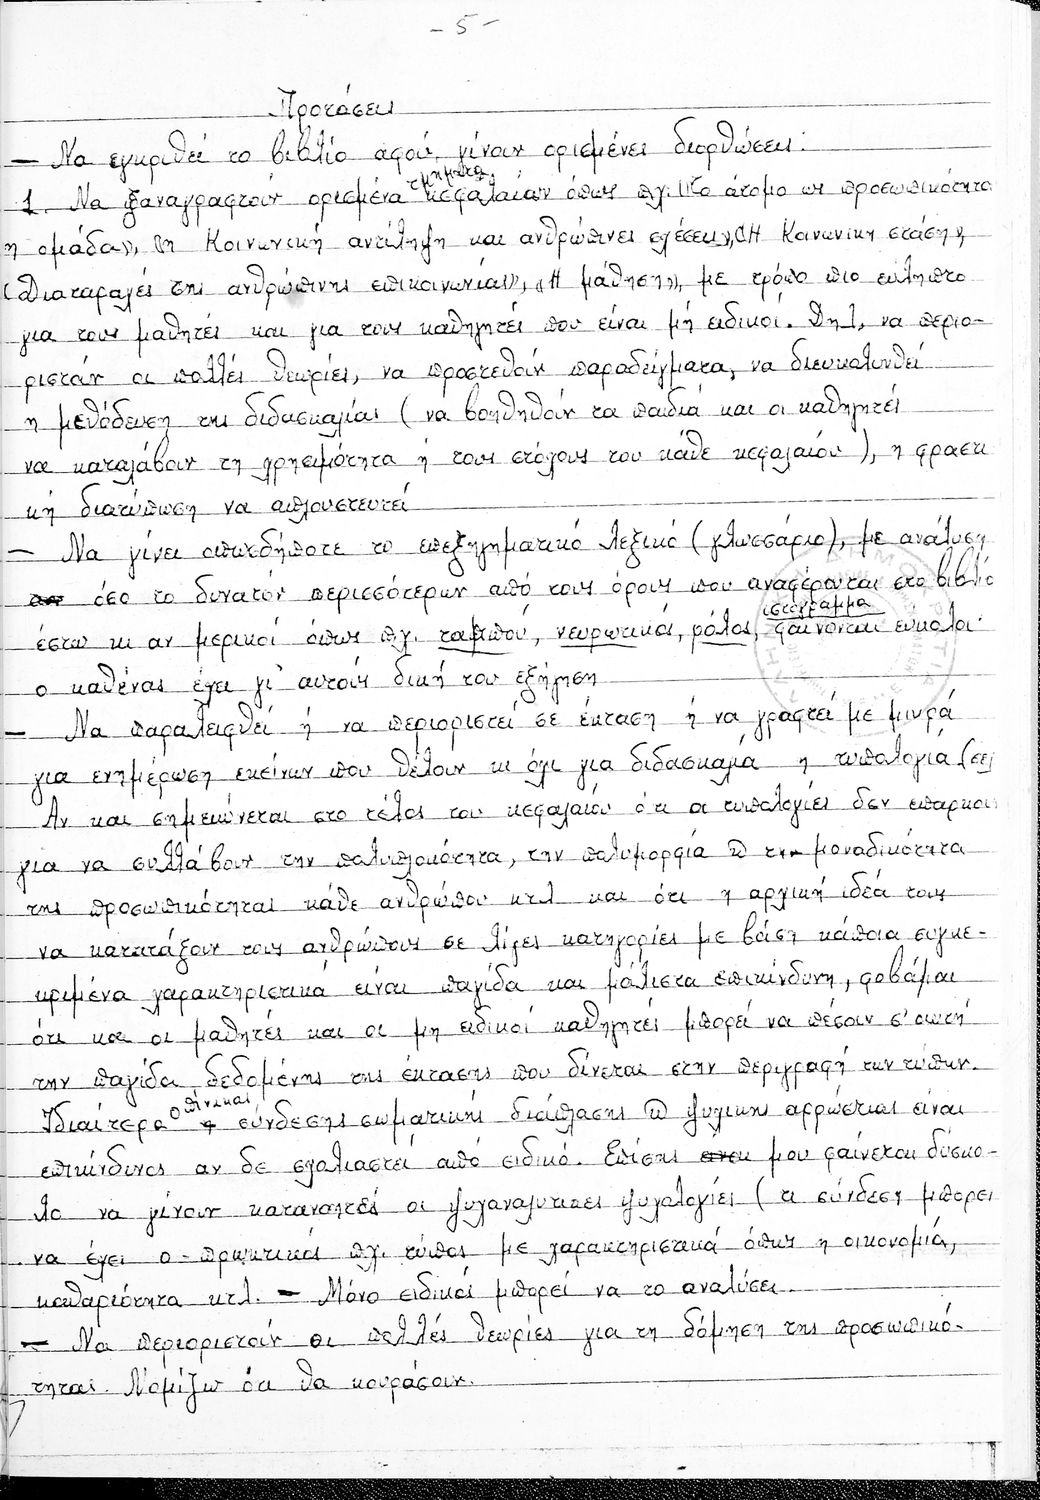 - 5 -
Προτάσεις
— Να εγκριθεί το βιβλίο αφού γίνουν ορισμένες διορθώσεις:
1. Να ξαναγραφτούν ορισμένα τμήματα κεφαλαίων όπως π.χ. «Το άτομο ως προσωπικότητα
η ομάδα», «η Κοινωνική αντίληψη και ανθρώπινες σχέσεις», «Η Κοινωνικη στάση»,
«Διαταραχές της ανθρώπινης επικοινωνίας», «Η μάθηση», με τρόπο πιο εύληπτο
για τους μαθητές και για τους καθηγητές που είναι μή ειδικοί. Δηλ, να περιο-
ριστούν οι πολλές θεωρίες, να προστεθούν παραδείγματα, να διευκολυνθεί
η μεθόδευση της διδασκαλίας (να βοηθηθούν τα παιδιά και οι καθηγητές
να καταλάβουν τη χρησιμότητα ή τους στόχους του κάθε κεφαλαίου), η φραστι
κή διατύπωση να απλουστευτεί
— Να γίνει οπωσδήποτε το επεξηγηματικό λεξικό (γλωσσάριο), με ανάλυση
όσο το δυνατόν περισσότερων από τους όρους που αναφέρονται στο βιβλίο
έστω κι αν μερικοί όπως π.χ. ταμπού, νευρωτικός, ρόλος, ιστόγραμμα φαίνονται εύκολοι·
ο καθένας έχει γι' αυτούς δική του εξήγηση
— Να παραλειφθεί ή να περιοριστεί σε έκταση ή να γραφτεί με μικρά
για ενημέρωση εκείνων που θέλουν κι όχι για διδασκαλία η τυπολογία (σελ
Αν και σημειώνεται στο τέλος του κεφαλαίου ότι οι τυπολογίες δεν επαρκού
για να συλλάβουν την πολυπλοκότητα, την πολυμορφία ϗ τη μοναδικότητα
της προσωπικότητας κάθε ανθρώπου κτλ και ότι η αρχική ιδέα τους
να κατατάξουν τους ανθρώπους σε λίγες κατηγορίες με βάση κάποια συγκε-
κριμένα χαρακτηριστικά είναι παγίδα και μάλιστα επικίνδυνη, φοβάμαι
ότι και οι μαθητές και οι μη ειδικοί καθηγητές μπορεί να πέσουν σ' αυτή
την παγίδα δεδομένης της έκτασης που δίνεται στην περιγραφή των τύπων.
Ιδιαίτερα ο πίνακας σύνδεσης σωματικής διάπλασης ϗ ψυχικης αρρώστιας είναι
επικίνδυνος αν δε σχολιαστεί από ειδικό. Επίσης μου φαίνεται δύσκο-
λο να γίνουν κατανοητές οι ψυχαναλυτικές ψυχολογίες (τι σύνδεση μπορεί
να έχει ο πρωκτικός π.χ. τύπος με χαρακτηριστικά όπως η οικονομία,
καθαριότητα κτλ. — Μόνο ειδικοί μπορεί να το αναλύσει.
— Να περιοριστούν οι πολλές θεωρίες για τη δόμηση της προσωπικό-
τητας. Νομίζω ότι θα κουράσουν.